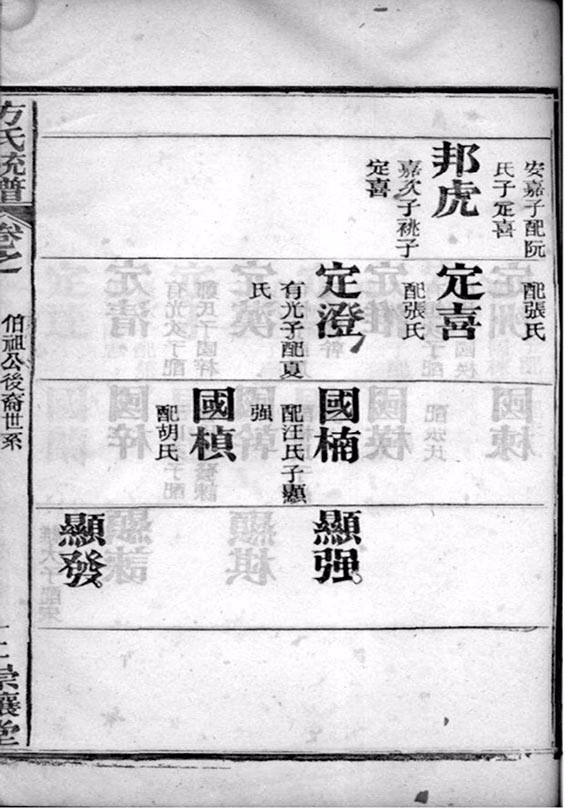 安嘉子配阮
氏子定喜
邦虎
嘉次子祧子
定喜
配張氏
定喜
配張氏
定澄
有光子配夏
氏
國楠
配汪氏子顯
强
國楨
配胡氏
顯强
顯發
方氏統譜
卷之
伯祖公後裔世系
崇讓堂